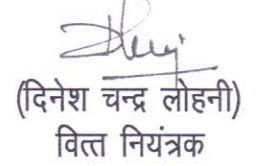 (दिनेश चन्द्र लोहनी)
वित्त नियंत्रक